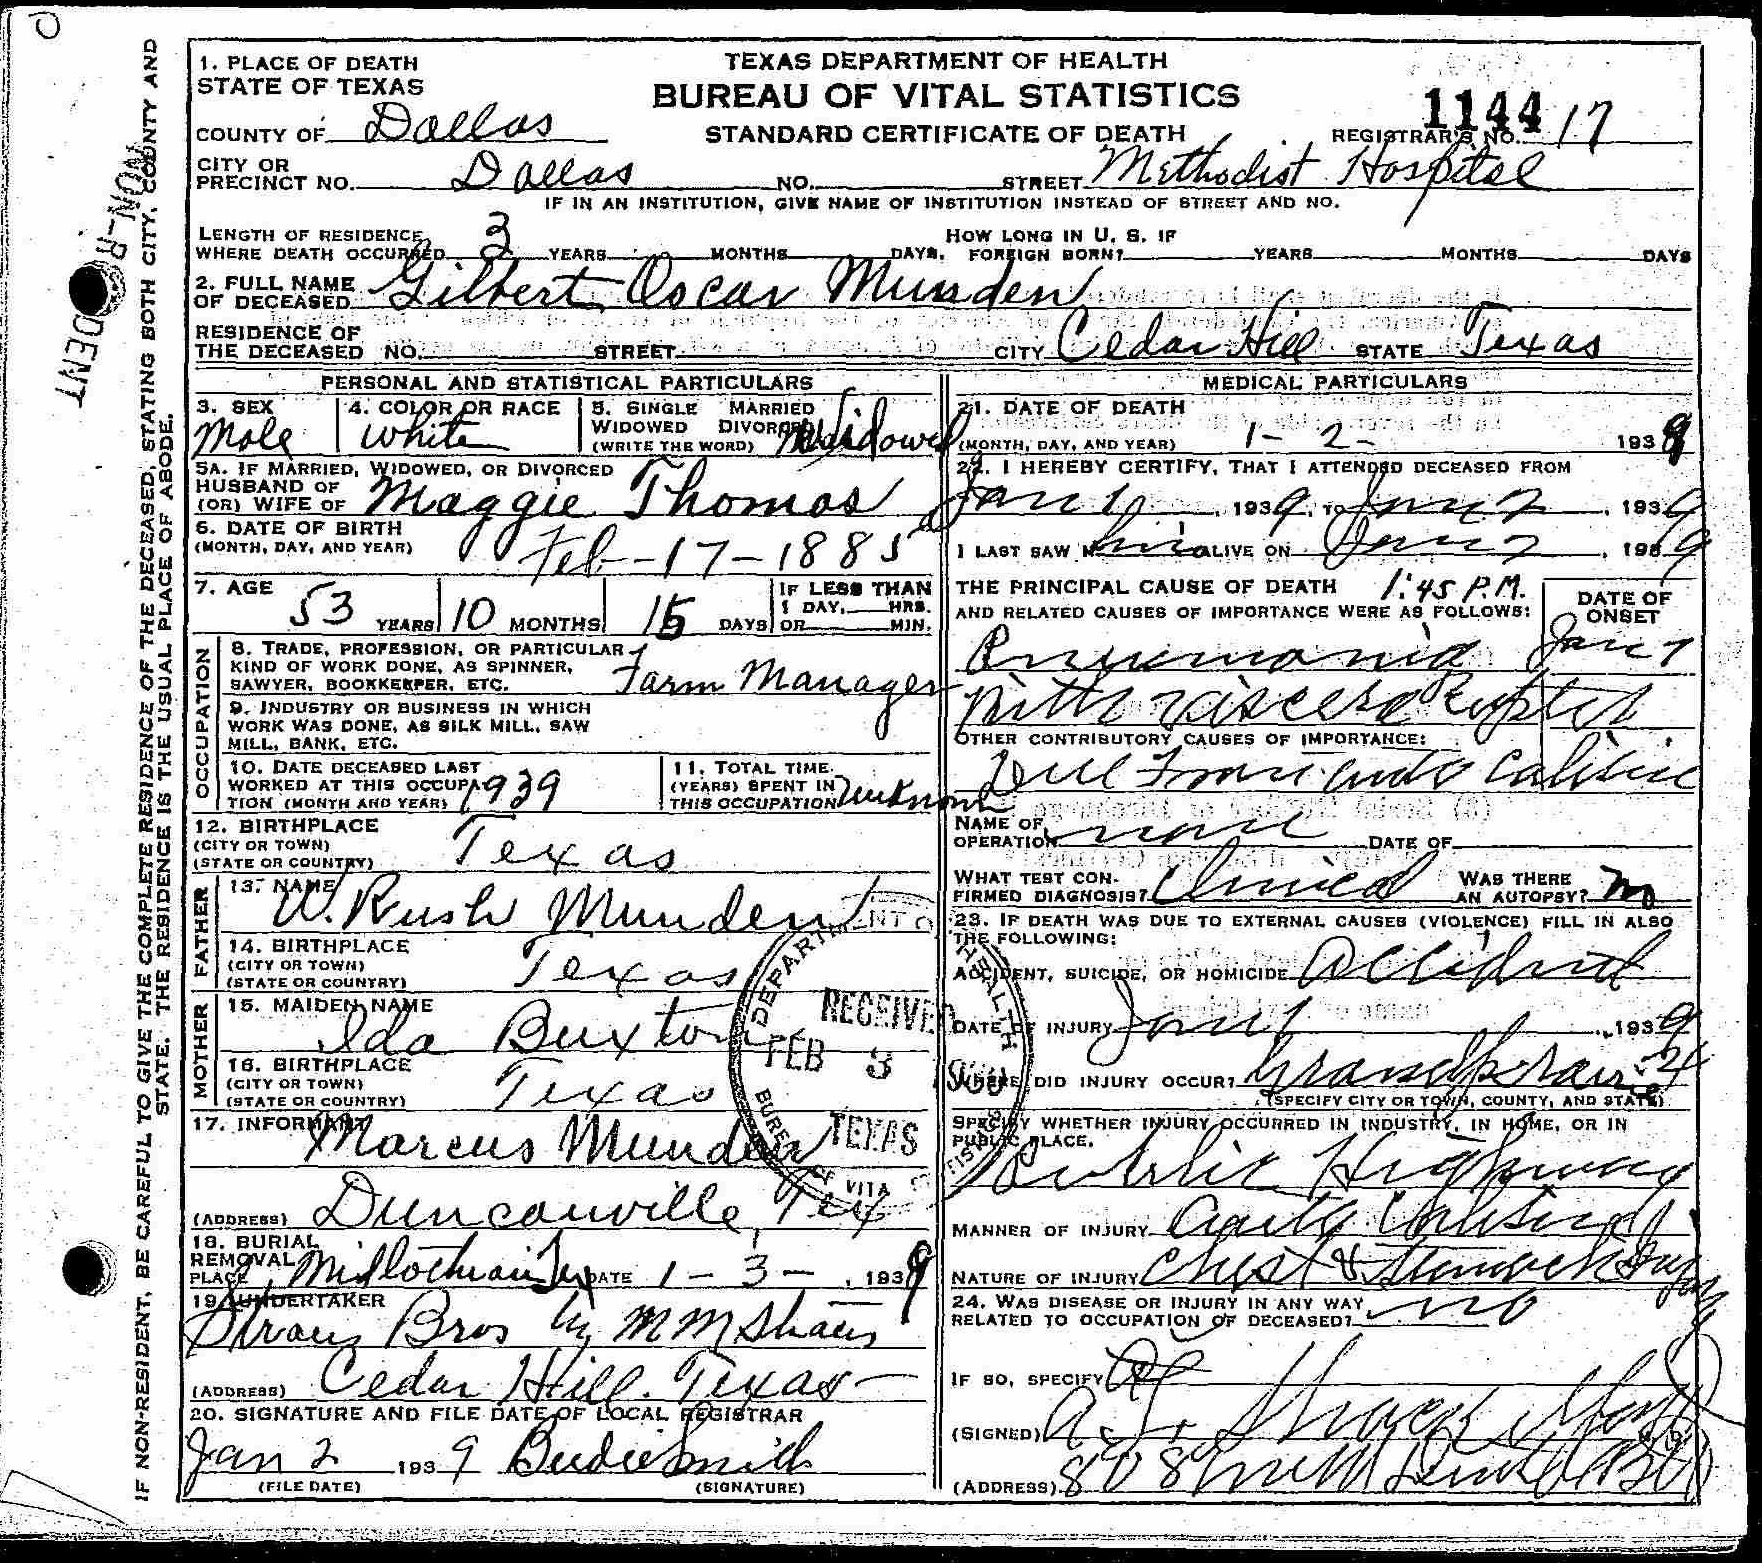 1. PLACE OF DEATH
STATE OF TEXAS
TEXAS DEPARTMENT OF HEALTH
BUREAU OF VITAL STATISTICS
STANDARD CERTIFICATE OF DEATH
COUNTY OF Dallas
REGISTRAR'S NO. 1144 17
CITY OR
PRECINCT NO. Dallas NO. STREET Methodist Hospital
IF IN AN INSTITUTION, GIVE NAME OF INSTITUTION INSTEAD OF STREET AND NO.
LENGTH OF RESIDENCE
WHERE DEATH OCCURRED 3 YEARS MONTHS DAYS.
HOW LONG IN U. S. IF
FOREIGN BORN? YEARS MONTHS DAYS
2. FULL NAME
OF DECEASED Gilbert Oscar Munden
RESIDENCE OF
THE DECEASED NO. STREET CITY Cedar Hill STATE Texas
PERSONAL AND STATISTICAL PARTICULARS
3. SEX
Male
4. COLOR OR RACE
White
5. SINGLE MARRIED
WIDOWED DIVORCED
(WRITE THE WORD) Widowed
5A. IF MARRIED, WIDOWED, OR DIVORCED
HUSBAND OF
(OR) WIFE OF Maggie Thomas
6. DATE OF BIRTH
(MONTH, DAY, AND YEAR) Feb-17-1885
7. AGE
53 YEARS 10 MONTHS 15 DAYS
IF LESS THAN
1 DAY, HRS.
OR MIN.
OCCUPATION
8. TRADE, PROFESSION, OR PARTICULAR
KIND OF WORK DONE, AS SPINNER,
SAWYER, BOOKKEEPER, ETC. Farm Manager
9. INDUSTRY OR BUSINESS IN WHICH
WORK WAS DONE, AS SILK MILL, SAW
MILL, BANK, ETC.
10. DATE DECEASED LAST
WORKED AT THIS OCCUPA-
TION (MONTH AND YEAR) 1939
11. TOTAL TIME
(YEARS) SPENT IN
THIS OCCUPATION Unknown
12. BIRTHPLACE
(CITY OR TOWN)
(STATE OR COUNTRY) Texas
FATHER
13. NAME
W. Rush Munden
14. BIRTHPLACE
(CITY OR TOWN)
(STATE OR COUNTRY) Texas
MOTHER
15. MAIDEN NAME
Ida Buxton
16. BIRTHPLACE
(CITY OR TOWN)
(STATE OR COUNTRY) Texas
17. INFORMANT Marcus Munden
(ADDRESS) Duncanville, Tex
18. BURIAL
REMOVAL
PLACE Midlothian Tex DATE 1-3-, 1939
19. UNDERTAKER
Straus Bros by M M Straus
(ADDRESS) Cedar Hill. Texas
20. SIGNATURE AND FILE DATE OF LOCAL REGISTRAR
Jan 2 1939 Smith
(FILE DATE) (SIGNATURE)
MEDICAL PARTICULARS
21. DATE OF DEATH
(MONTH, DAY, AND YEAR) 1-2- 1939
22. I HEREBY CERTIFY, THAT I ATTENDED DECEASED FROM
Jan 1, 1939, TO Jan 2, 1939
I LAST SAW him ALIVE ON Jan 2, 1939
THE PRINCIPAL CAUSE OF DEATH 1:45 P.M.
AND RELATED CAUSES OF IMPORTANCE WERE AS FOLLOWS:
DATE OF
ONSET
Pneumonia Jan 1
With viscera
OTHER CONTRIBUTORY CAUSES OF IMPORTANCE:
Due from auto
NAME OF
OPERATION none DATE OF
WHAT TEST CON-
FIRMED DIAGNOSIS? Clinical
WAS THERE
AN AUTOPSY? no
23. IF DEATH WAS DUE TO EXTERNAL CAUSES (VIOLENCE) FILL IN ALSO
THE FOLLOWING:
ACCIDENT, SUICIDE, OR HOMICIDE Accident
DATE OF INJURY Jan 1, 1939
WHERE DID INJURY OCCUR? Grand Prairie
(SPECIFY CITY OR TOWN, COUNTY, AND STATE)
SPECIFY WHETHER INJURY OCCURRED IN INDUSTRY, IN HOME, OR IN
PUBLIC PLACE.
Public Highway
MANNER OF INJURY Auto
NATURE OF INJURY Chest & Stomach
24. WAS DISEASE OR INJURY IN ANY WAY
RELATED TO OCCUPATION OF DECEASED? no
IF SO, SPECIFY
(SIGNED)
(ADDRESS)
RECEIVED
FEB 3
TEXAS
NON-R DENT
IF NON-RESIDENT, BE CAREFUL TO GIVE THE COMPLETE RESIDENCE OF THE DECEASED, STATING BOTH CITY, COUNTY AND
STATE. THE RESIDENCE IS THE USUAL PLACE OF ABODE.